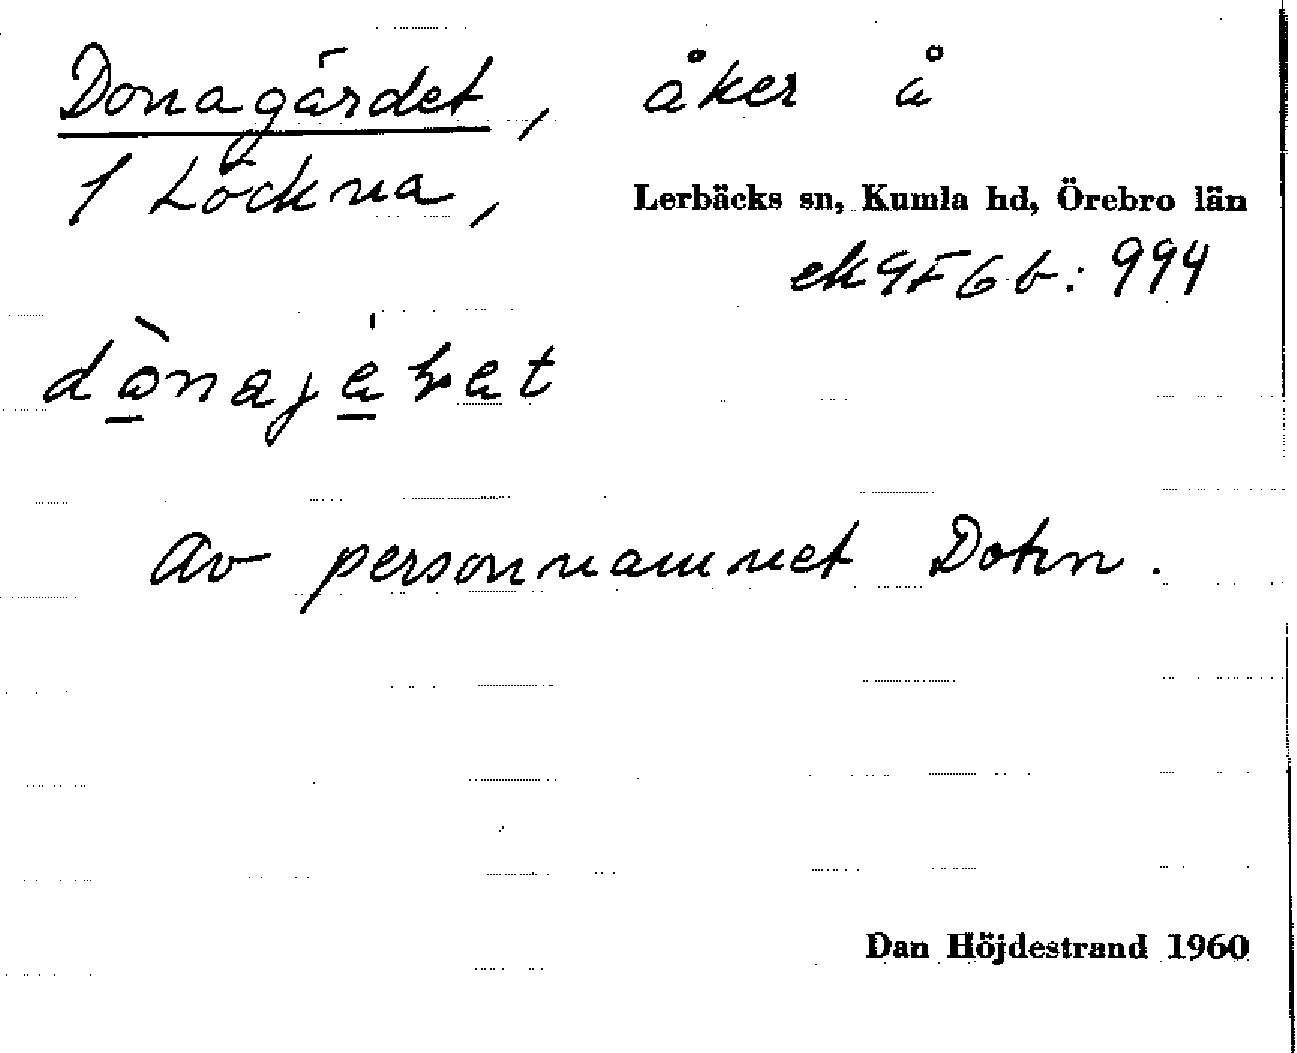 Donagärdet, åker å
1 Löckna,
Lerbäcks sn, Kumla hd, Örebro län
ek 9F6b: 994
Av personnamnet Dohn.
Dan Höjdestrand 1960